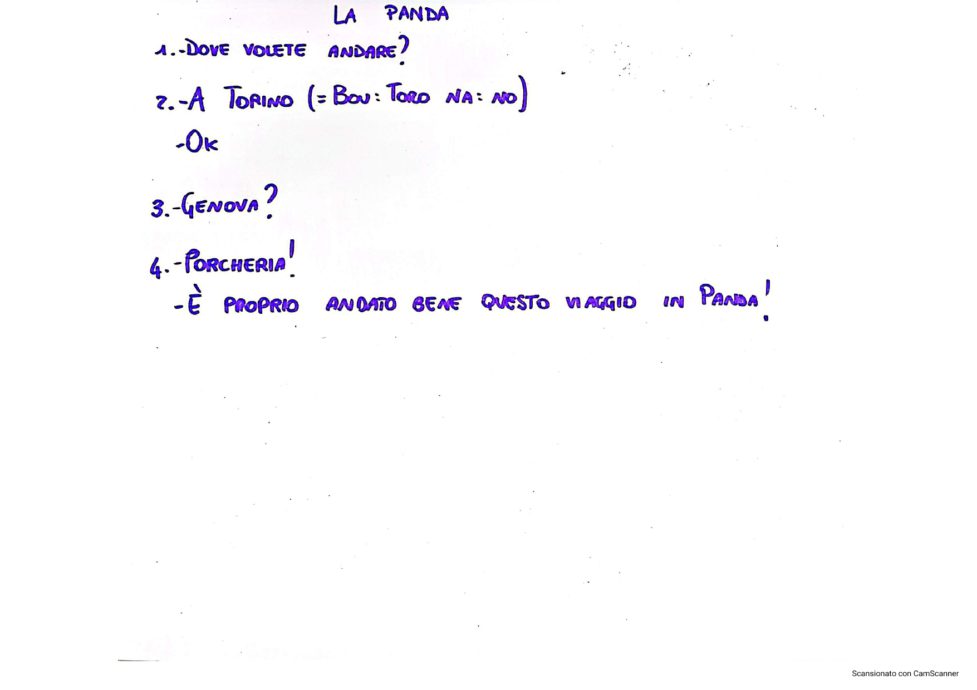 LA PANDA
1.-DOVE VOLETE ANDARE?
2.-A TORINO (= BOV: TORO NA: NO)
-OK
3.-GENOVA?
4.-PORCHERIA!
-È PROPRIO ANDATO BENE QUESTO VIAGGIO IN PANDA!
Scansionato con CamScanner